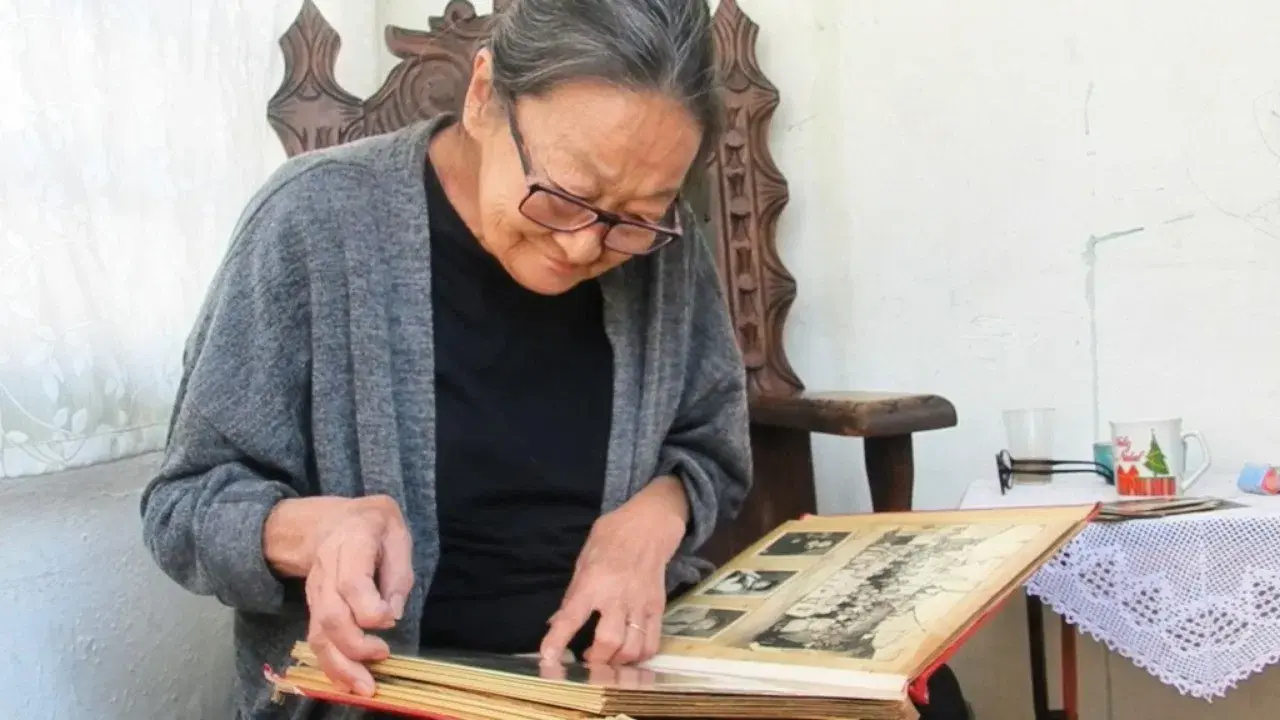 Feliz
Natal